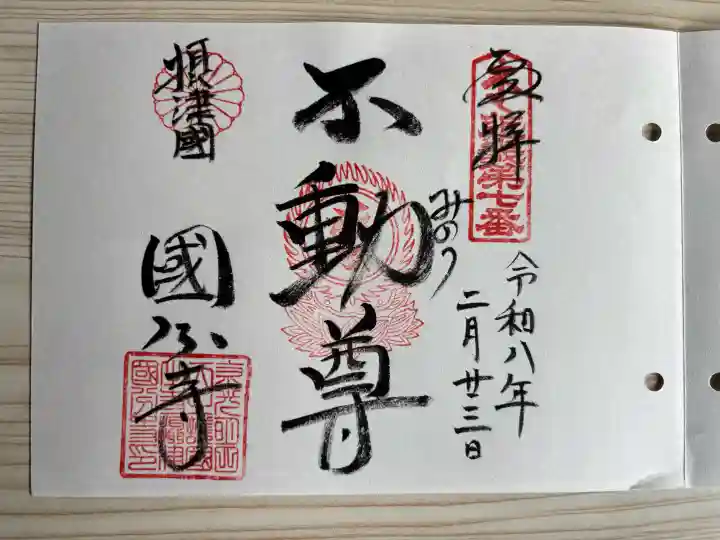 奉拝
第七番
令和八年
二月廿三日
みのり
不動尊
摂津國
國分寺